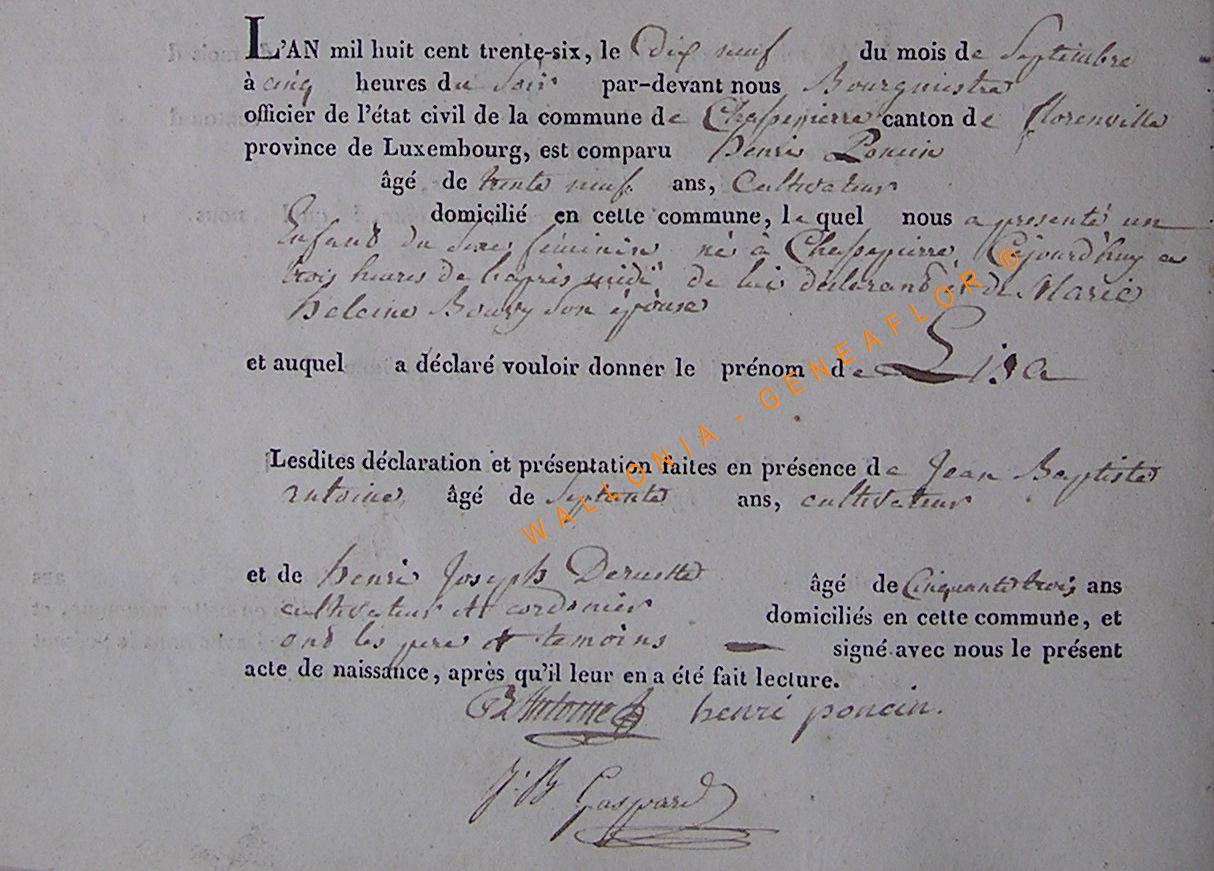 L'AN mil huit cent trente-six, le Dix neuf du mois de Septembre
à cinq heures du Soir par-devant nous Bourgmestre
officier de l'état civil de la commune de Chassepierre canton de florenville
province de Luxembourg, est comparu henri Poncin
âgé de trente neuf ans, Cultivateur
domicilié en cette commune, lequel nous a presenté un
Enfant du Sexe féminin né à Chassepierre, Cejourd'huy a
trois heures de l'après midi de lui declarant et de Marie
heleine Boury Son épouse
et auquel a déclaré vouloir donner le prénom de Lisa
Lesdites déclaration et présentation faites en présence de Jean Baptiste
antoine âgé de Septante ans, cultivateur
et de henri Joseph âgé de Cinquante trois ans
cultivateur et cordonier domiciliés en cette commune, et
ont les pere et temoins signé avec nous le présent
acte de naissance, après qu'il leur en a été fait lecture.
Antoine henri poncin.
J. B. Gaspard
WALLONIA - GENEAFLOR ®